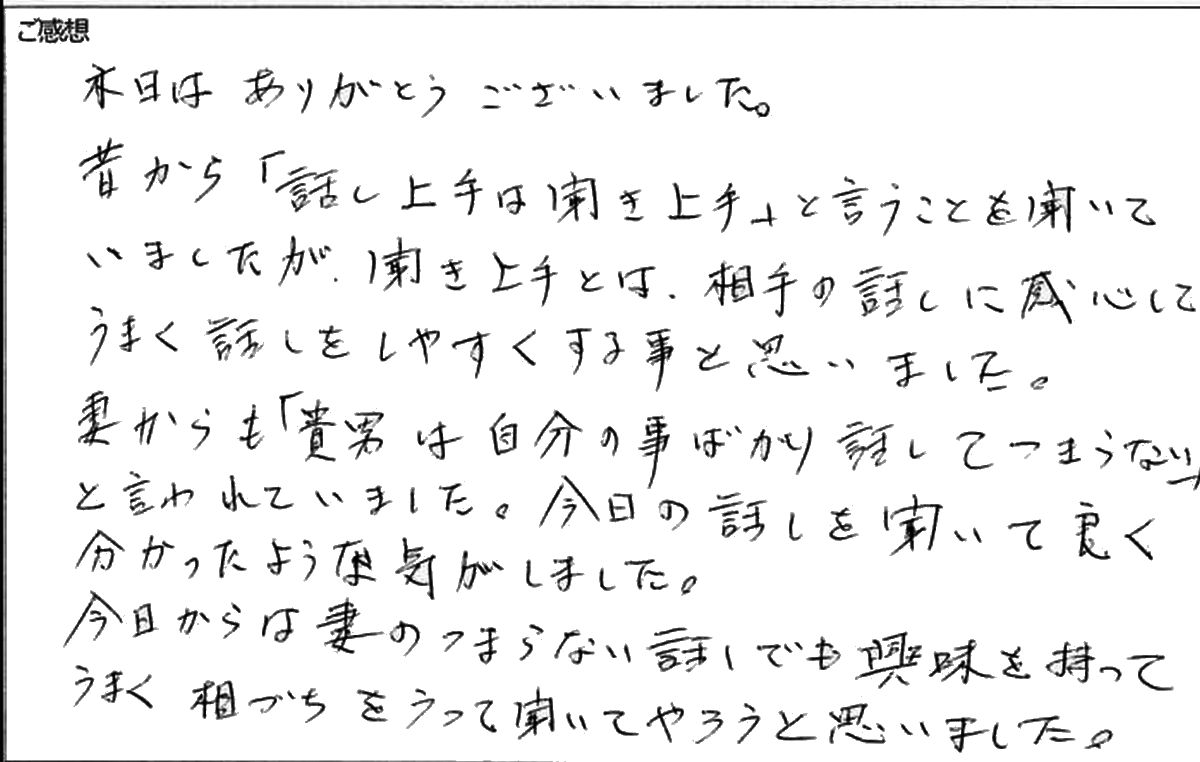 ご感想
本日は ありがとう ございました。
昔から「話し上手は聞き上手」と言うことを聞いて
いましたが、聞き上手とは、相手の話しに感心して
うまく話しをしやすくする事と思いました。
妻からも「貴男は自分の事ばかり話してつまらない」
と言われていました。今日の話しを聞いて良く
分かったような気がしました。
今日からは妻のつまらない話しでも興味を持って
うまく相づちをうって聞いてやろうと思いました。